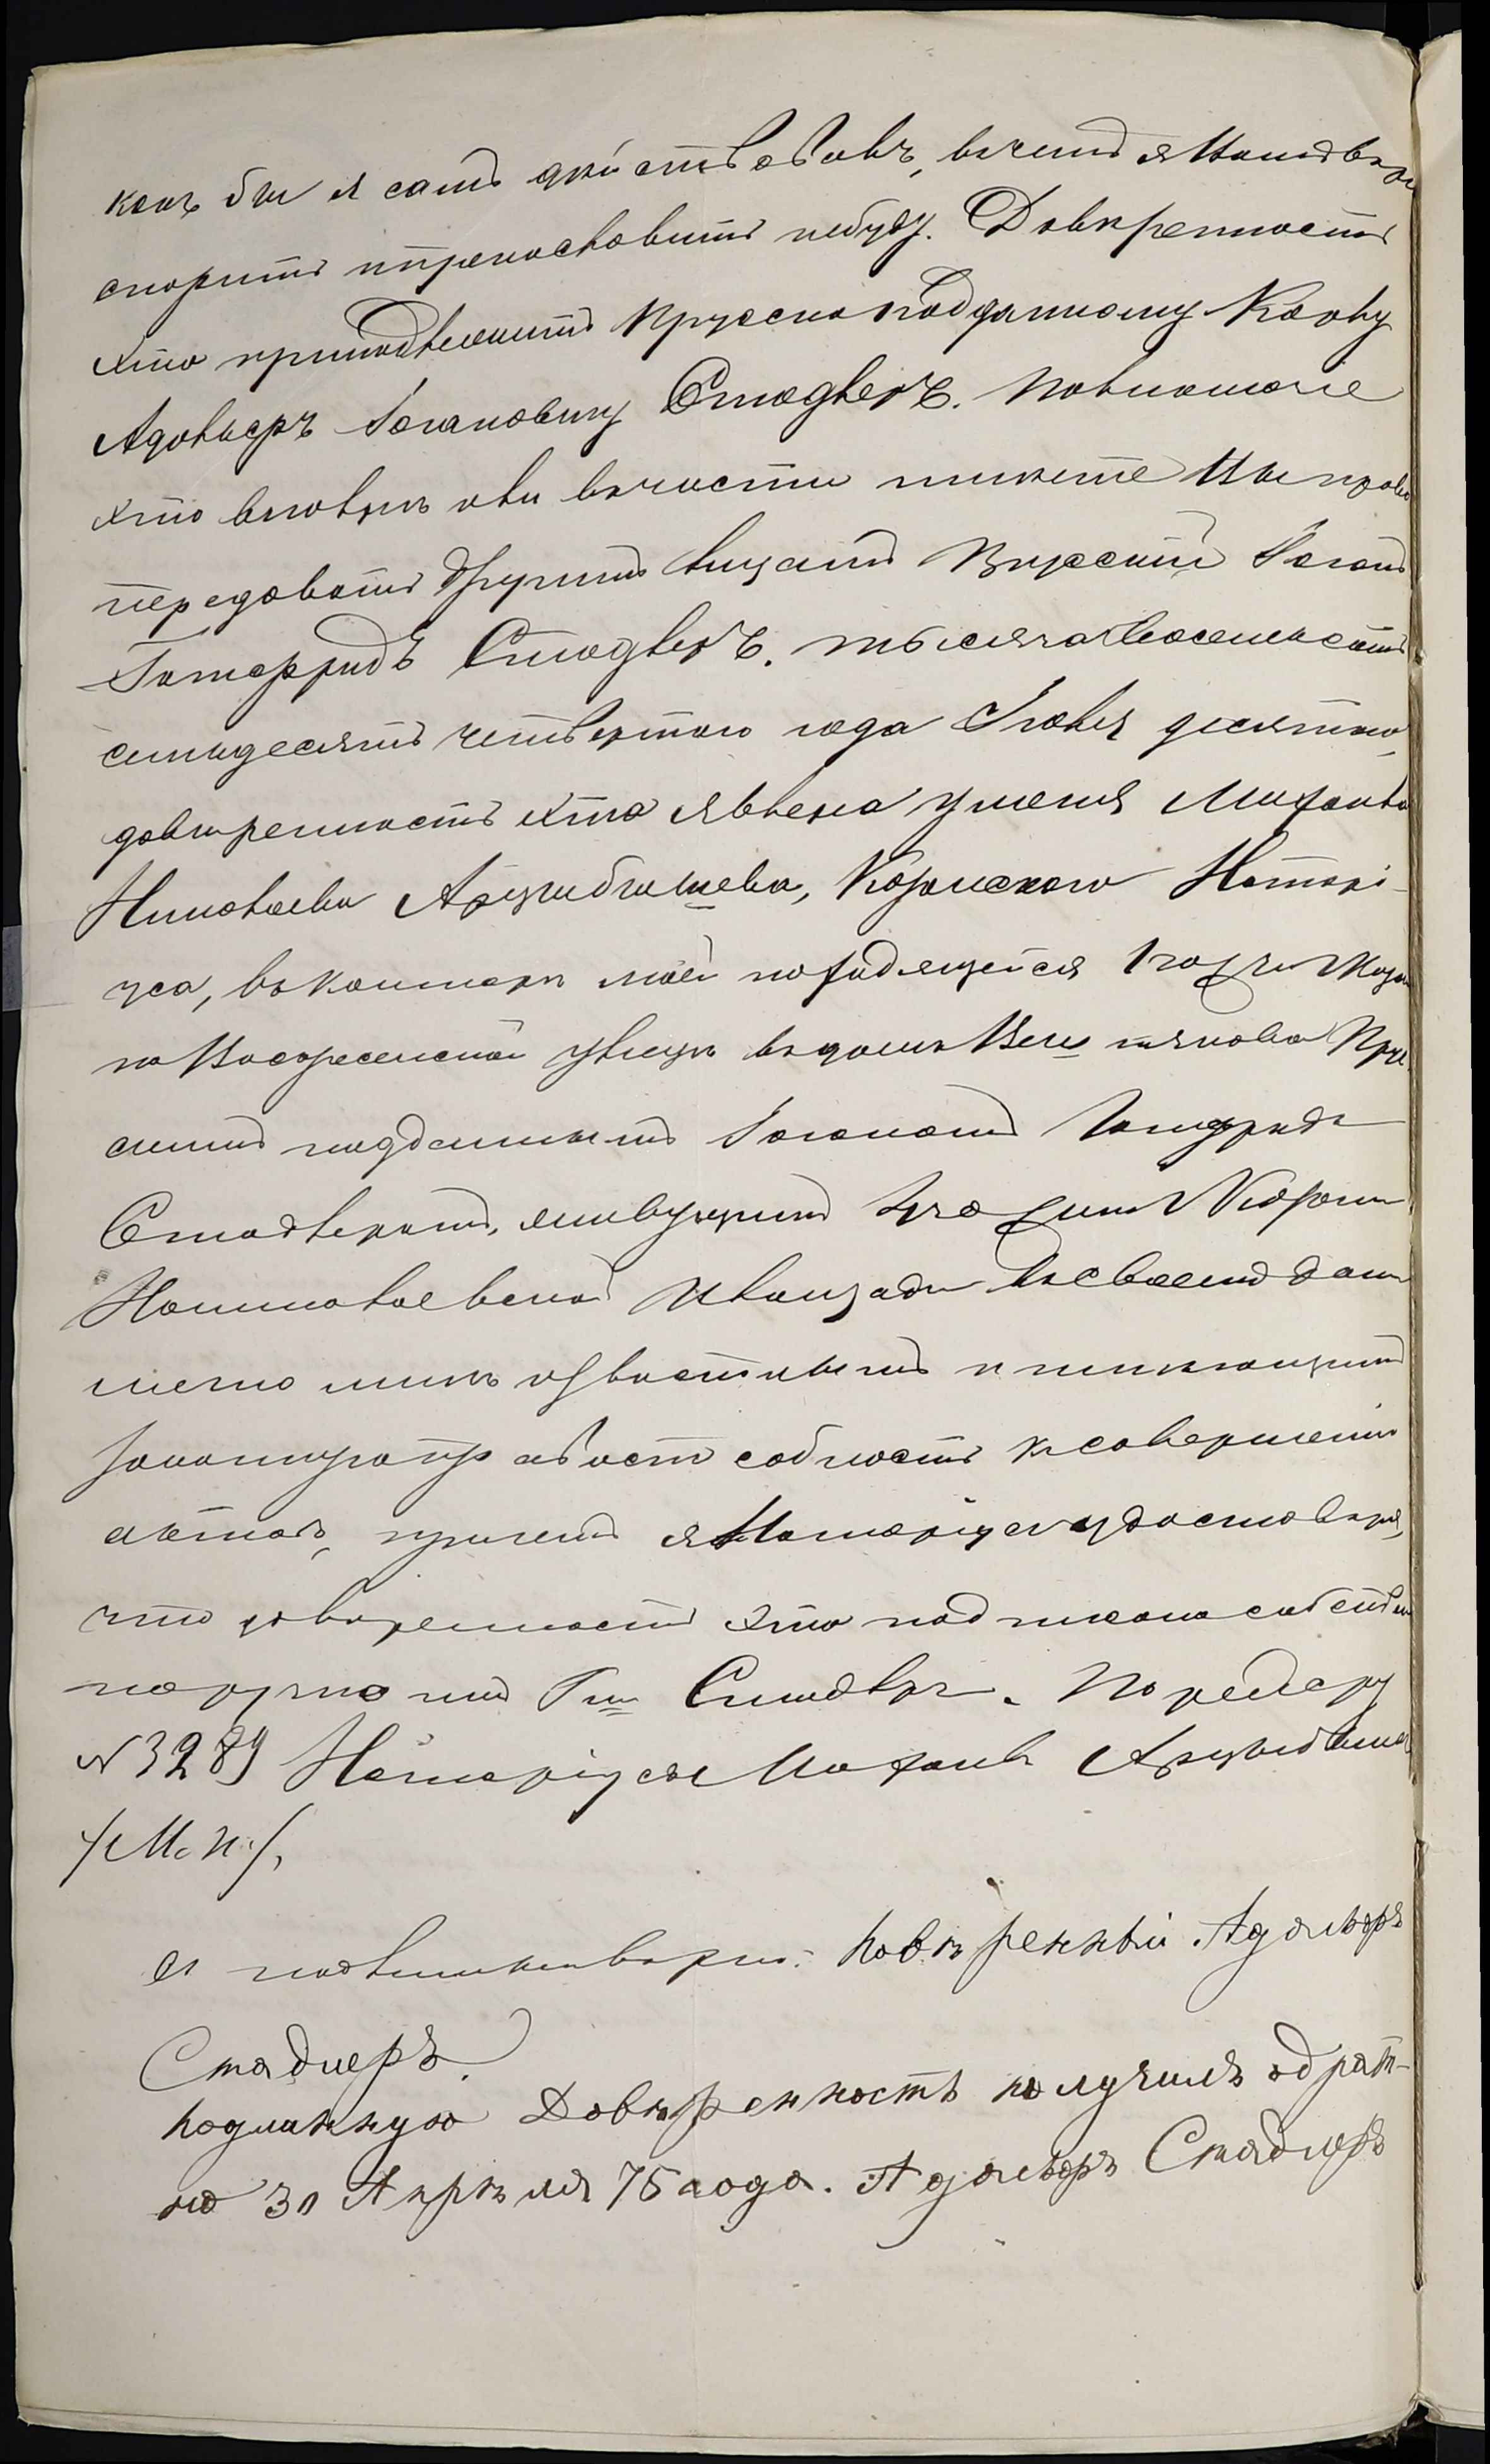 какъ бы я самъ дѣйствовалъ, въ чемъ я Вамъ вѣрю
спорить и прекословить небуду. Довѣренность
эта принадлежитъ Прусско подданному Карлу
Адольфу Іогановичу Стадлеръ. Полномочіе
это вполнѣ или въ части имѣете Вы право
передовать другимъ лицамъ Прусскій Іоганъ
Готфридъ Стадлеръ. тысяча восемьсотъ
семьдесятъ четвертого года Іюля десятаго
довѣренность эта явлена у меня Михаила
Николаева Арцыбышева, Казанского Нотарі-
уса, въ конторѣ моей находящейся 1 части Казани
на Воскресенской улицѣ въ домѣ Вемятнова Прус
скимъ подданнымъ Іоганомъ Готфридъ
Стадлеромъ, живущимъ 4 части Казани
Николаевской площади въ своемъ домѣ
лично мнѣ извѣстнымъ и имѣющимъ
законную правоспособность къ совершенію
актовъ, причемъ я Нотаріусъ удостовѣряю,
что довѣренность эта подписана собствен
норучно имъ Гм Стадлеръ. По реестру
№ 3289 Нотаріусъ Михаилъ Арцыбышевъ
/М. П./,
съ подлиннымъ вѣрно: Повѣренный Адольфъ
Стадлеръ.
подлинную Довѣренность получилъ обрат-
но 30 Апрѣля 75 года. Адольфъ Стадлеръ